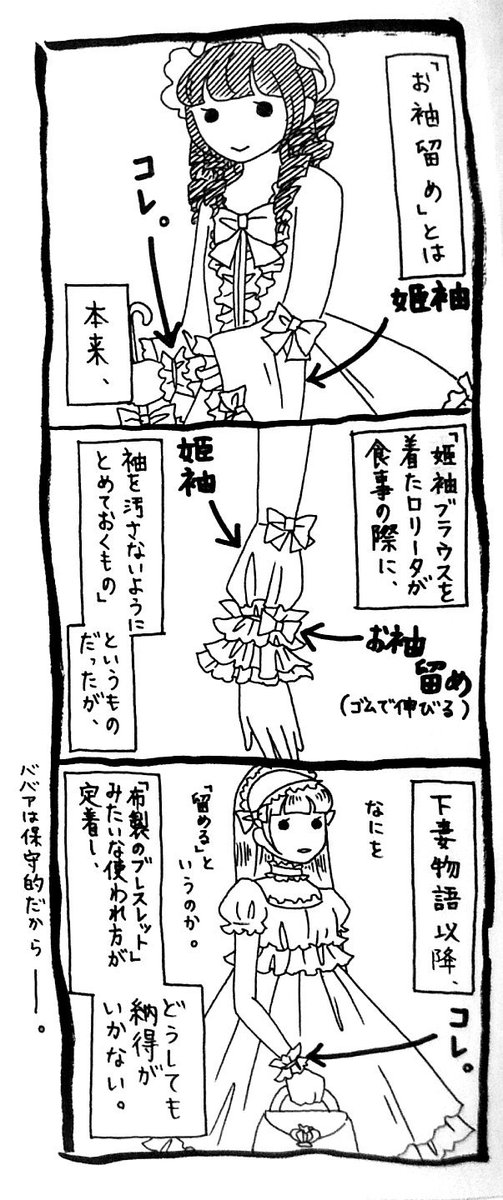 「お袖留め」とは
姫袖
コレ。
本来、
「姫袖ブラウスを
着たロリータが
食事の際に、
姫袖
袖を汚さないように
とめておくもの」
というもの
だったが、
お袖
留め
(ゴムで伸びる)
下妻物語以降、
なにを
「留める」と
いうのか。
コレ。
「布製のブレスレット」
みたいな使われ方が
定着し、
どうしても
納得が
いかない。
ババァは保守的だから──。